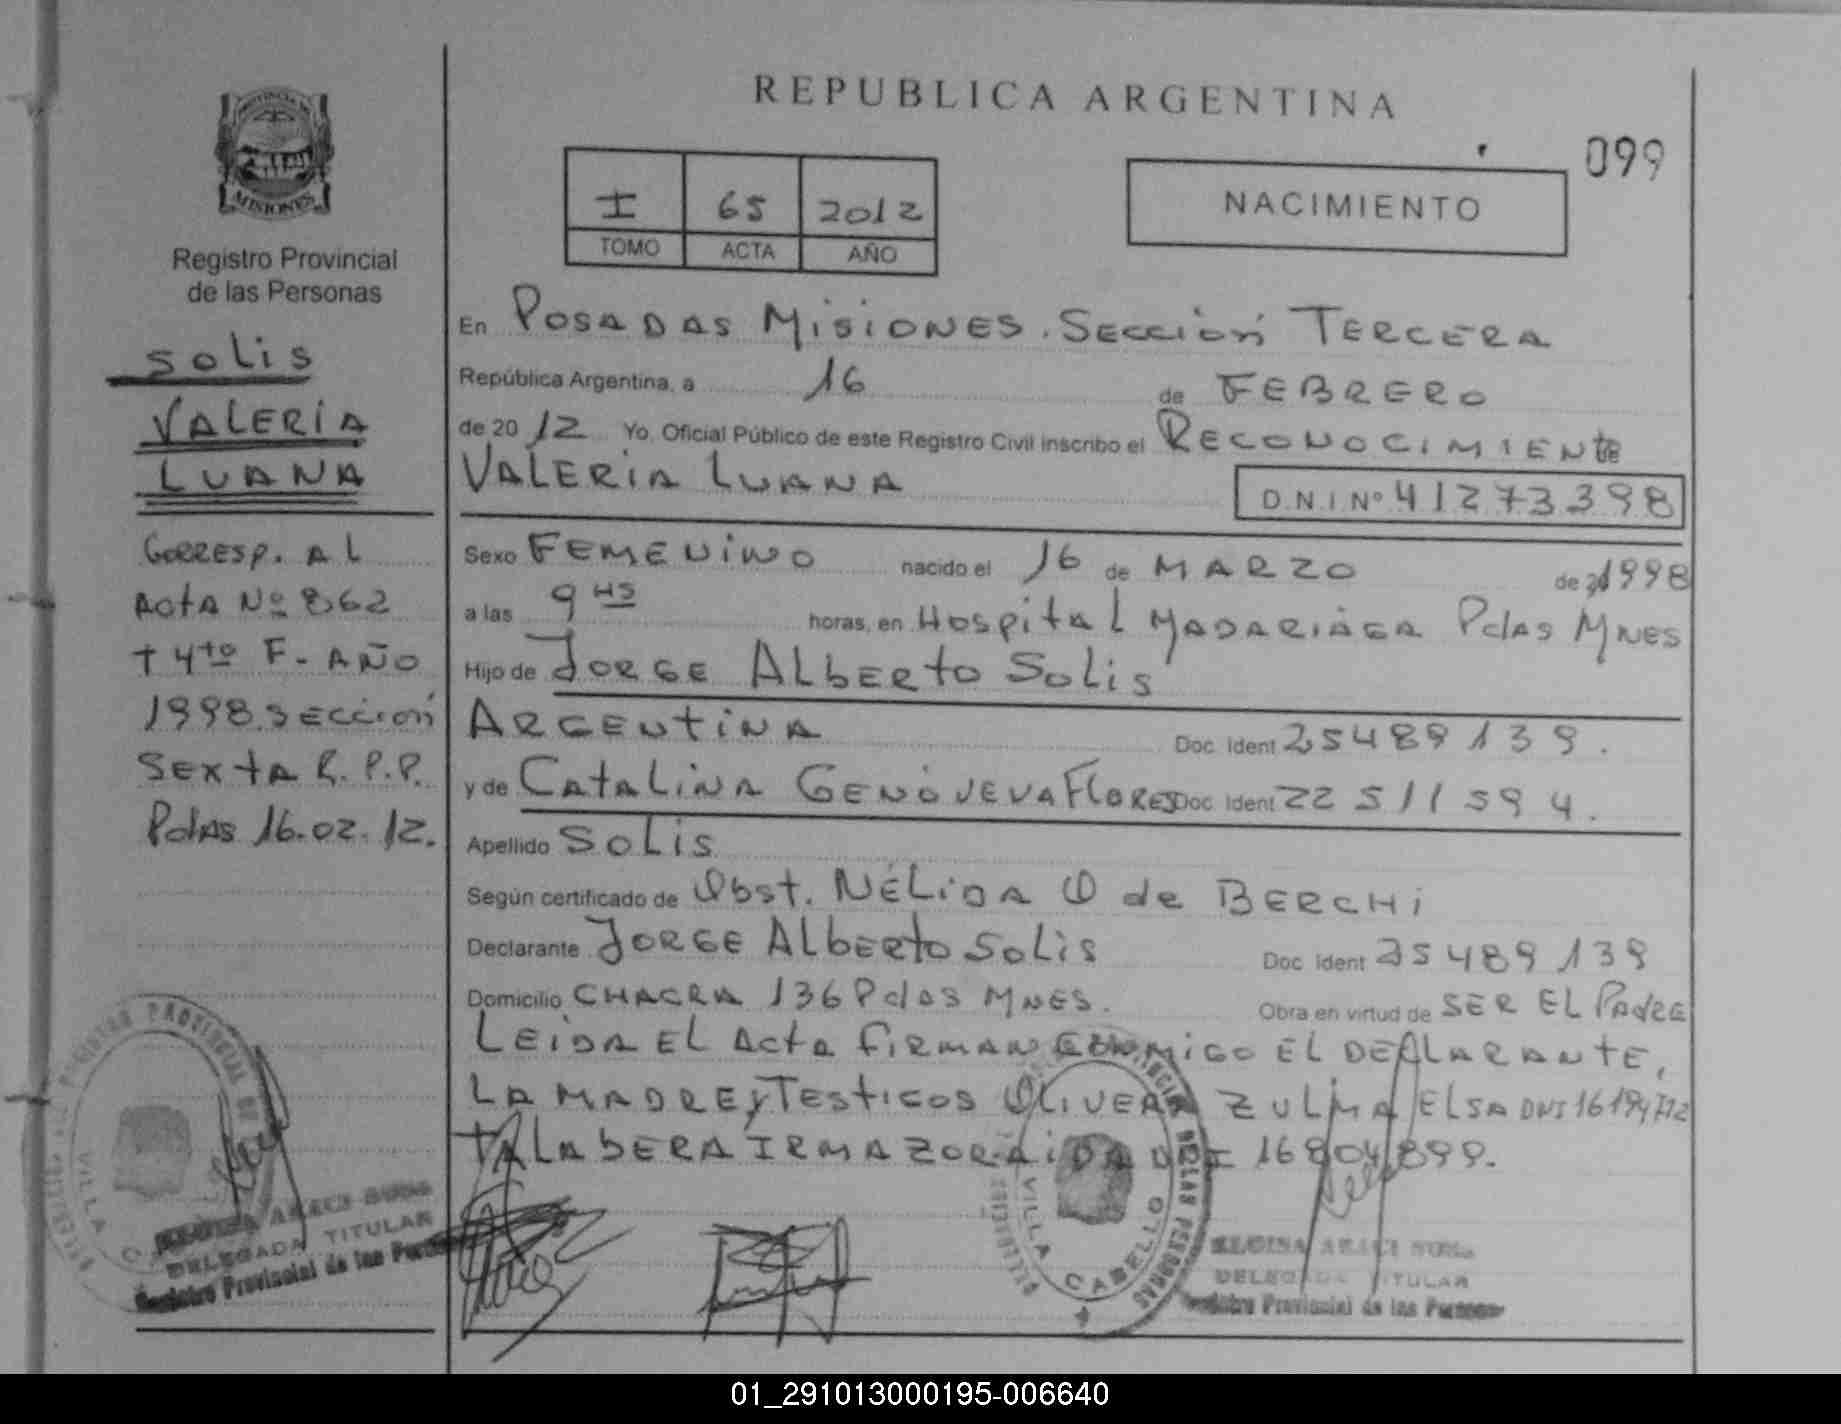 REPUBLICA ARGENTINA
099
I 65 2012
TOMO ACTA AÑO
NACIMIENTO
PROVINCIA DE
MISIONES
Registro Provincial
de las Personas
SOLIS
VALERIA
LUANA
CORRESP. AL
ACTA Nº 862
T 4to F- AÑO
1998 SECCION
SEXTA R.P.P.
Pdas 16.02.12.
En POSADAS MISIONES. SECCION TERCERA
República Argentina, a 16 de FEBRERO
de 2012 Yo, Oficial Público de este Registro Civil inscribo el RECONOCIMIENTO
VALERIA LUANA D.N.I Nº 41273398
Sexo FEMENINO nacido el 16 de MARZO de 1998
a las 9 HS horas, en HOSPITAL MADARIAGA Pdas MNES
Hijo de JORGE ALBERTO SOLIS
ARGENTINA Doc. Ident 25489139.
y de CATALINA GENOVEVA FLORES Doc. Ident 22511594.
Apellido SOLIS
Según certificado de Obst. NÉLIDA O de BERCHI
Declarante JORGE ALBERTO SOLIS Doc. Ident 25489139
Domicilio CHACRA 136 Pdas MNES. Obra en virtud de SER EL PADRE
LEIDA EL ACTA FIRMAN CONMIGO EL DECLARANTE,
LA MADRE y TESTIGOS OLIVERA ZULMA ELSA DNI
TALABERA IRMA ZORAIDA DNI 16804899.
VILLA CABELLO
DELEGADA TITULAR
Registro Provincial de las Personas
VILLA CABELLO
DELEGADA TITULAR
Registro Provincial de las Personas
01_291013000195-006640